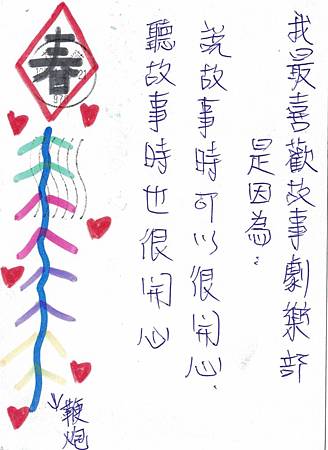 我最喜歡故事劇樂部
是因為:
說故事時可以很開心,
聽故事時也很開心
春
鞭炮